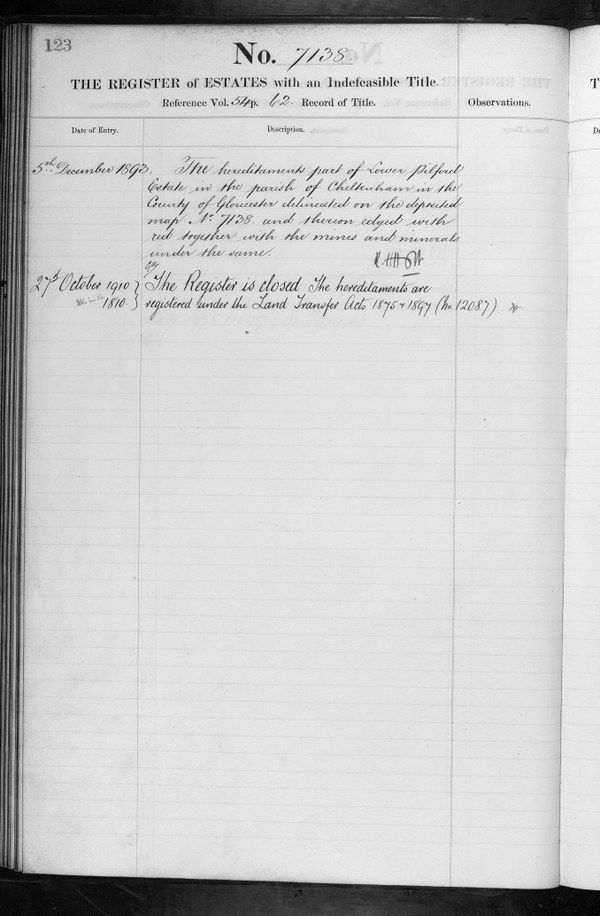 123
No. 7138.
THE REGISTER of ESTATES with an Indefeasible Title.
Reference Vol. 54 p. 62 Record of Title.
Observations.
Date of Entry.
Description.
5th December 1893. The hereditaments part of Lower Pilford
Estate in the parish of Cheltenham in the
County of Gloucester delineated on the deposited
map No. 7138 and thereon edged with
red together with the mines and minerals
under the same.
27th October 1910 } The Register is closed The hereditaments are
1810. } registered under the Land Transfer Acts 1875 & 1897 (No 12087)